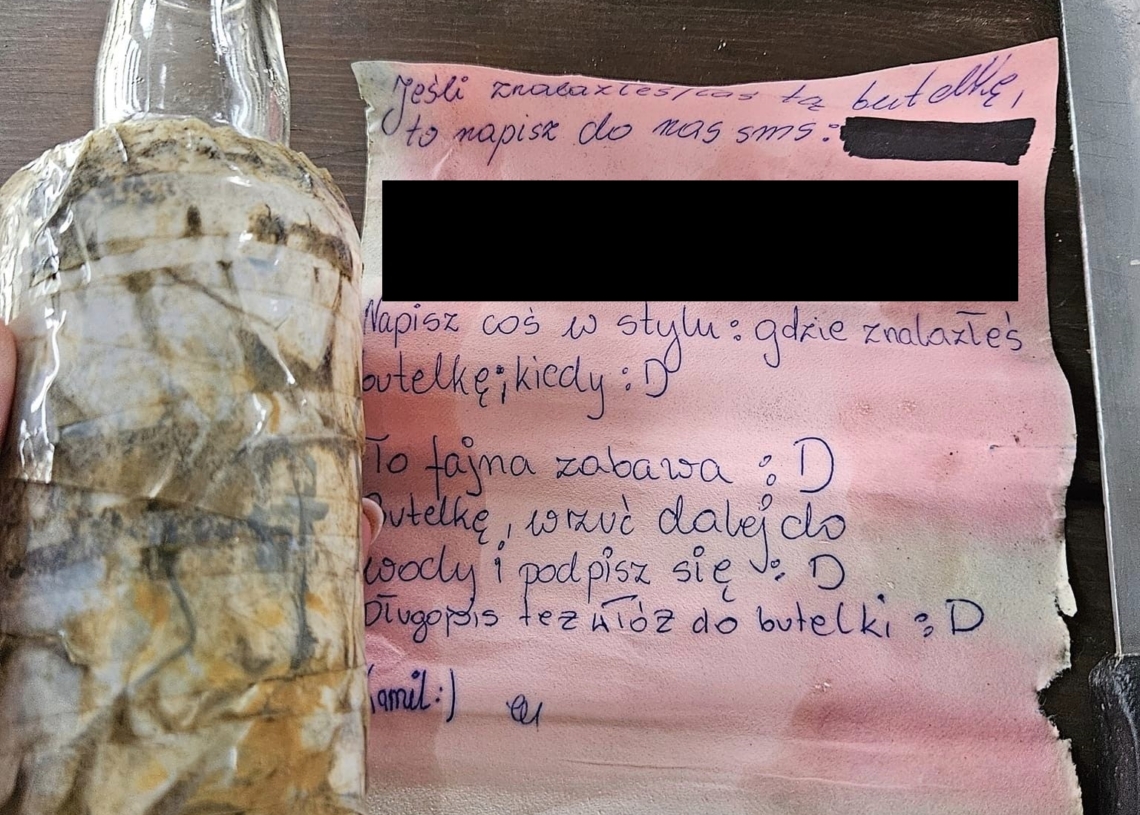 Jeśli znalazłeś/łaś tą butelkę,
to napisz do nas sms:
Napisz coś w stylu: gdzie znalazłeś
butelkę; kiedy :D
To fajna zabawa :D
Butelkę, wrzuć dalej do
wody i podpisz się :D
Długopis też włóż do butelki :D
Kamil:)